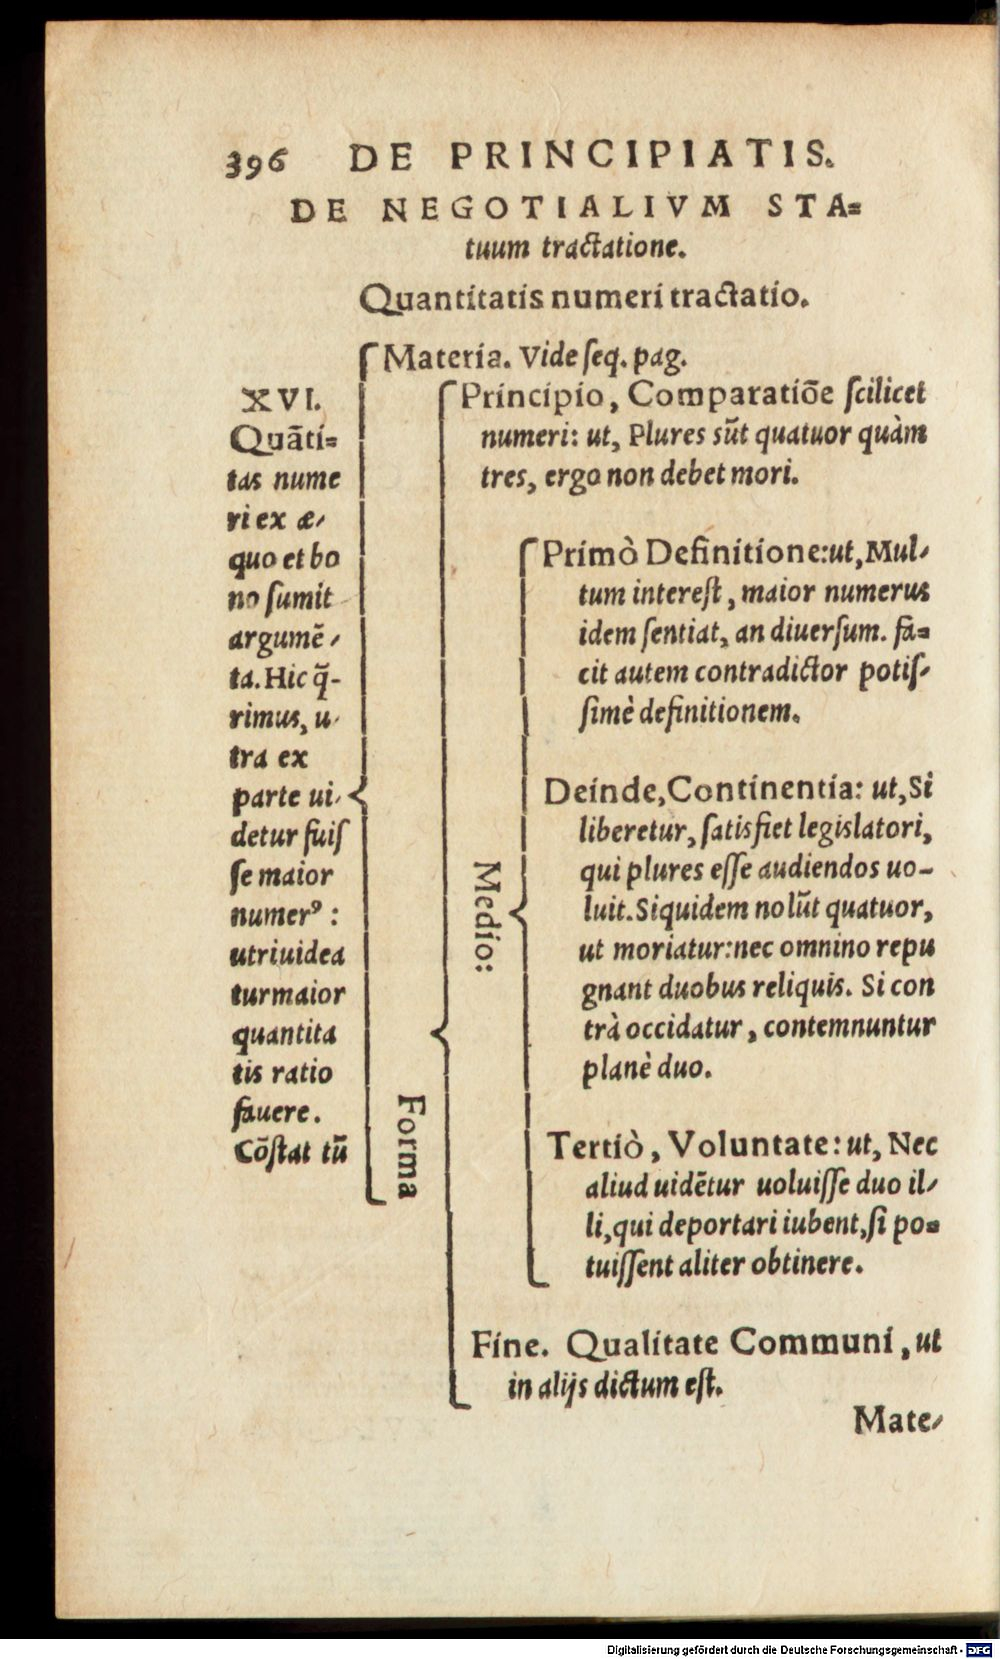 396 DE PRINCIPIATIS.
DE NEGOTIALIVM STA=
tuum tractatione.
Quantitatis numeri tractatio.
XVI.
Quãti=
tas nume
ri ex æ-
quo et bo
no ſumit
argumẽ-
ta. Hic q̃-
rimus, u-
tra ex
parte ui-
detur fuiſ
ſe maior
numerꝰ :
utri uidea
tur maior
quantita
tis ratio
fauere.
Cõſtat tũ
Materia. Vide ſeq. pag.
Forma
Principio, Comparatiõe ſcilicet
numeri: ut, Plures sũt quatuor quàm
tres, ergo non debet mori.
Medio:
Primò Definitione: ut, Mul-
tum intereſt, maior numerus
idem ſentiat, an diuerſum. fa=
cit autem contradictor potiſ-
ſimè definitionem.
Deinde, Continentia: ut, Si
liberetur, ſatisfiet legislatori,
qui plures eſſe audiendos uo-
luit. Siquidem nolũt quatuor,
ut moriatur: nec omnino repu
gnant duobus reliquis. Si con
trà occidatur, contemnuntur
planè duo.
Tertiò, Voluntate: ut, Nec
aliud uidẽtur uoluiſſe duo il-
li, qui deportari iubent, ſi po=
tuiſſent aliter obtinere.
Fine. Qualitate Communi, ut
in alijs dictum eſt.
Mate-
Digitalisierung gefördert durch die Deutsche Forschungsgemeinschaft - DFG